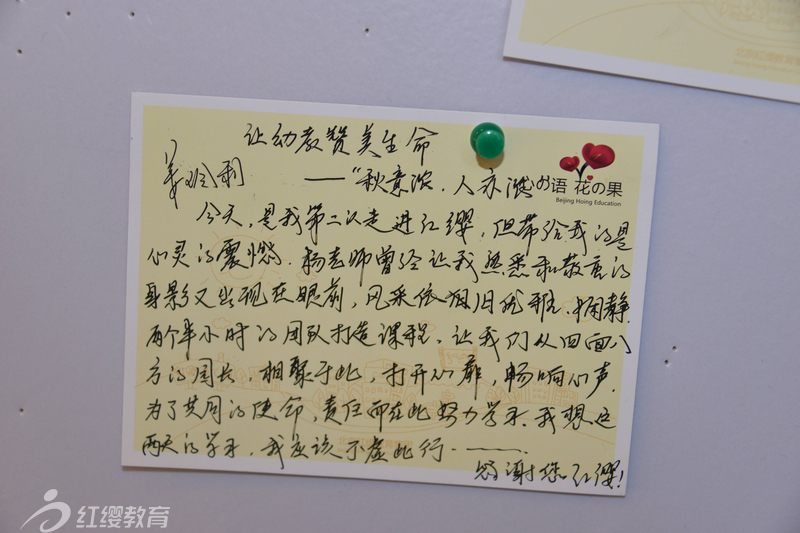 让幼教赞美生命
——“秋意浓,人亦浓
语 花の果
Beijing Hoing Education
今天,是我第二次走进红缨,但带给我的是
心灵的震撼.杨老师曾经让我熟悉和敬重的
身影又出现在眼前,风采依旧.娴静.
两个半小时的团队打造课程,让我们从四面八
方的园长,相聚于此,打开心扉,畅响心声
为了共同的使命,责任而在此努力学习.我想这
两天的学习,我应该不虚此行.……
感谢您红缨!
红缨教育